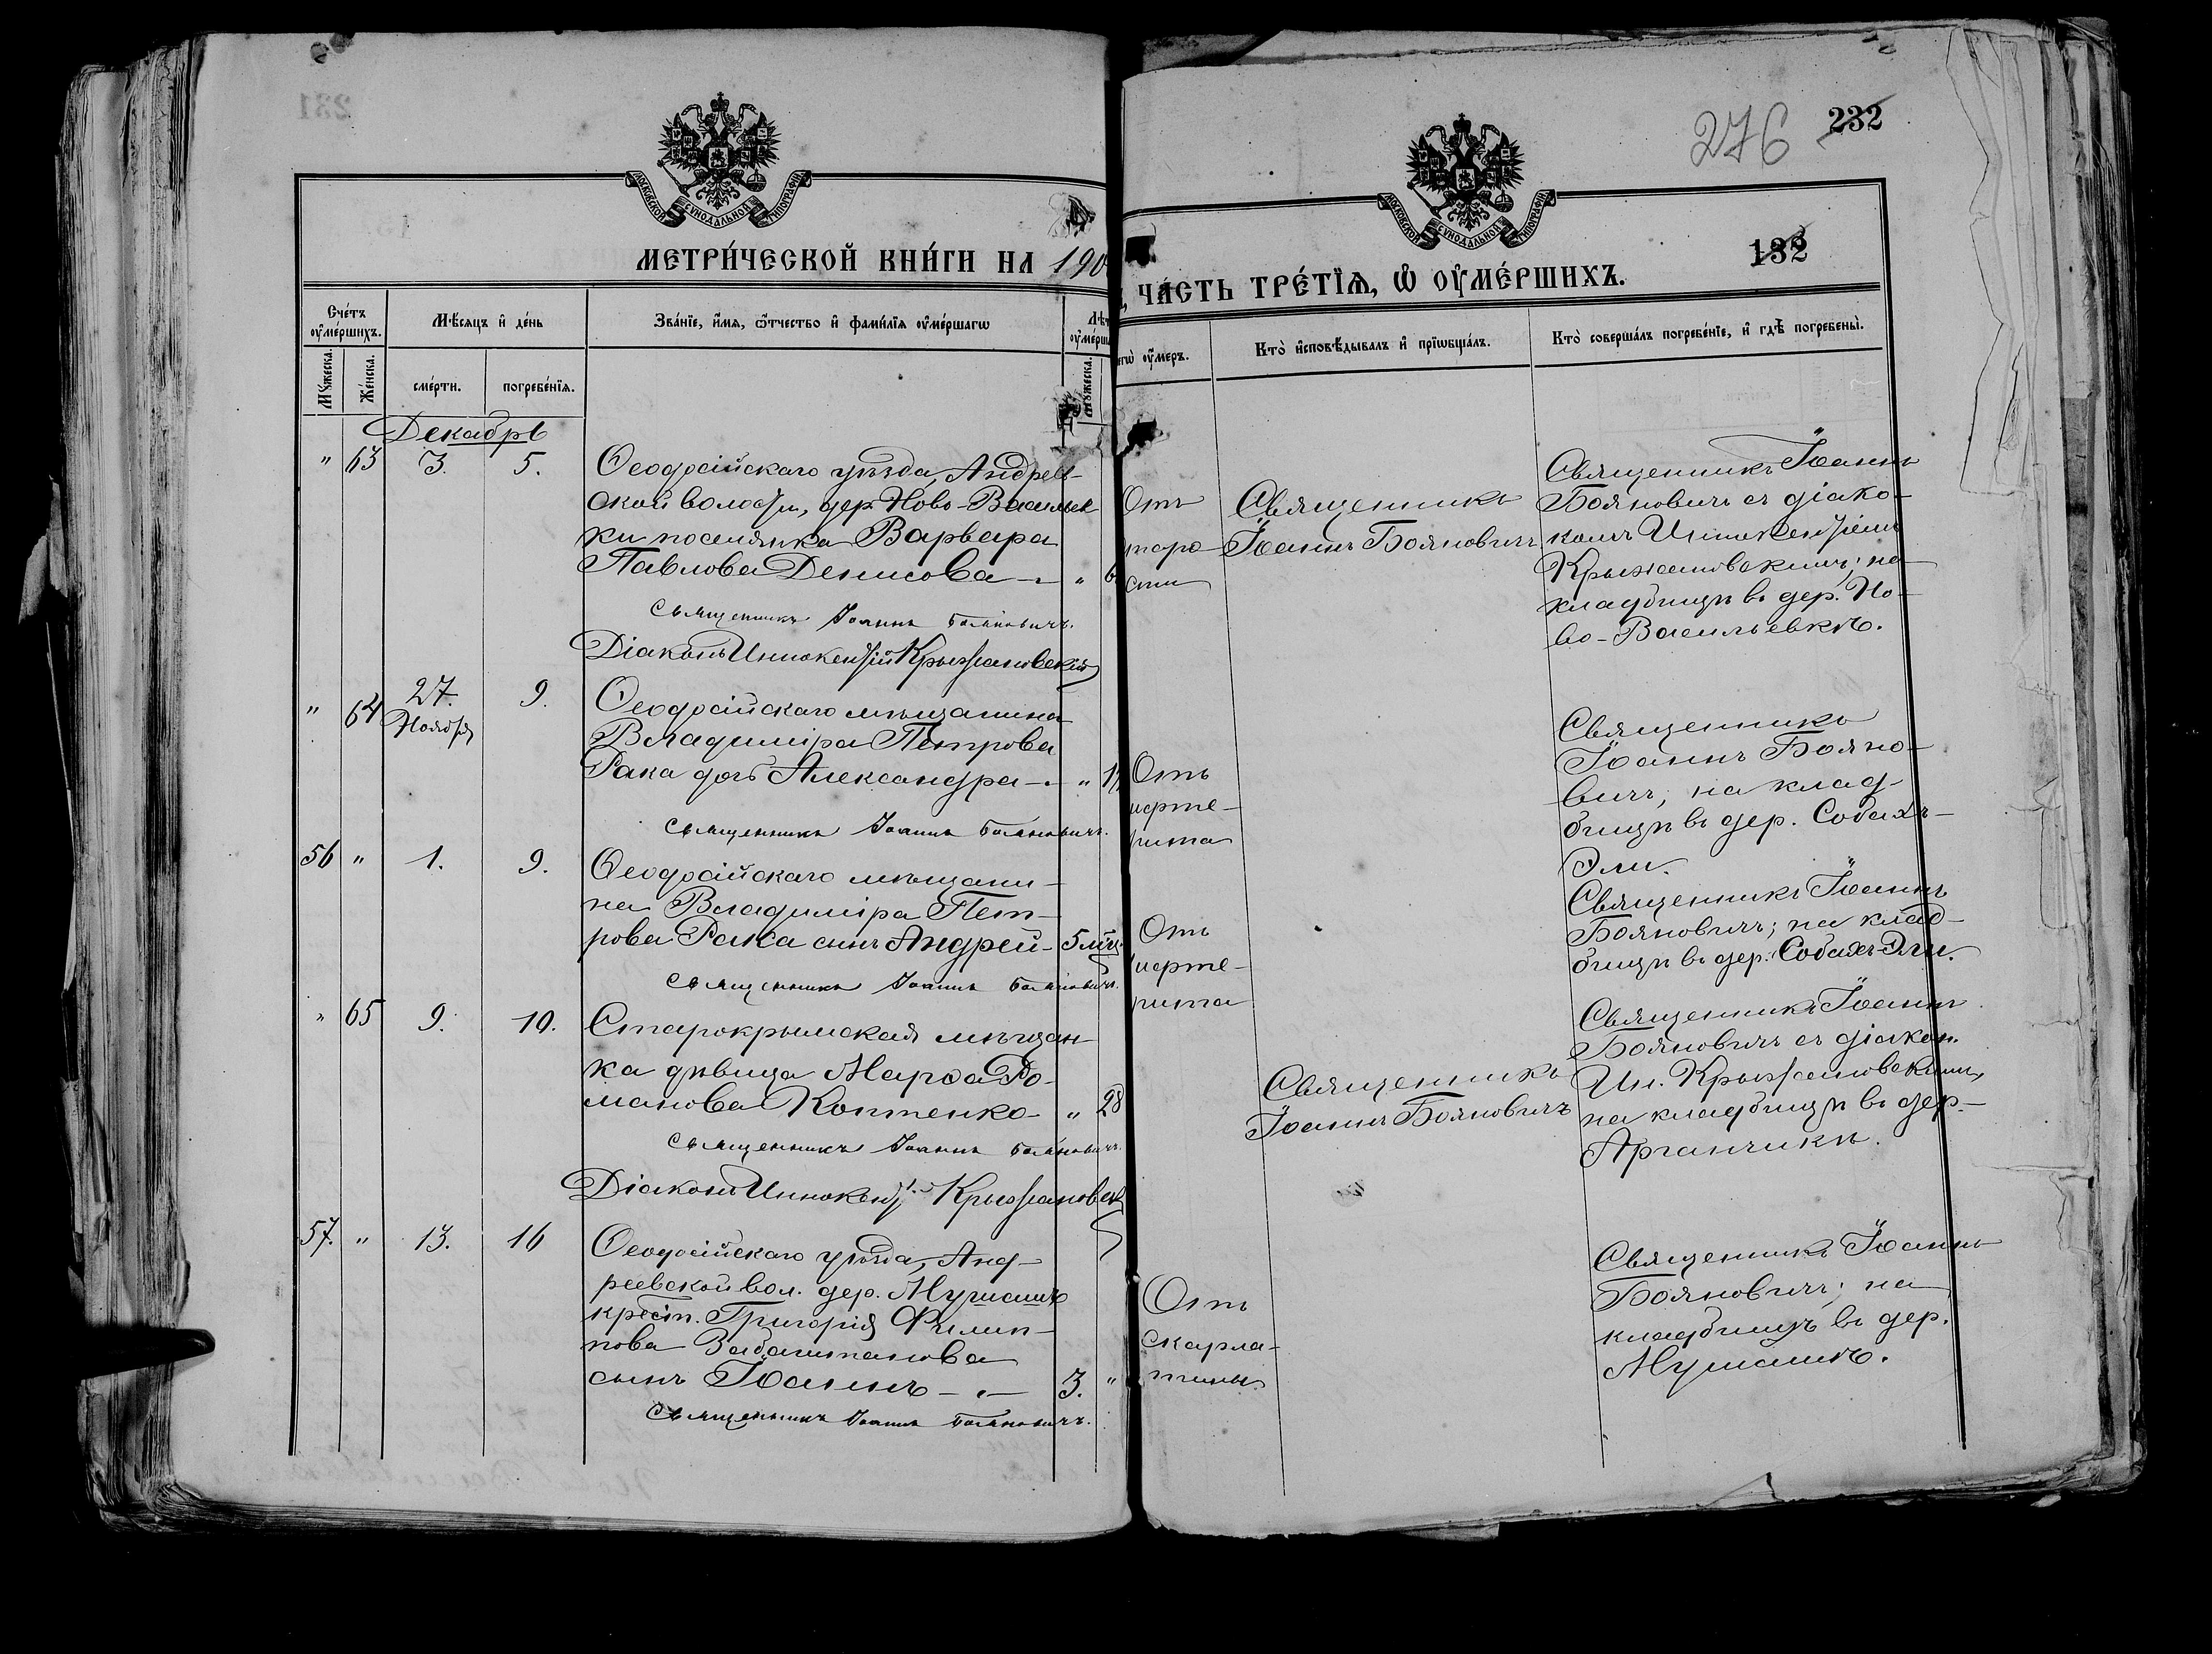 232
276
МОСКОВСКОЙ СУНОДАЛЬНОЙ ТИПОГРАФІИ
МОСКОВСКОЙ СУНОДАЛЬНОЙ ТИПОГРАФІИ
132
МЕТРИ́ЧЕСКОЙ КНИ́ГИ НА 190
ЧА́СТЬ ТРЕ́ТЇѦ, Ѡ҆ ОУ҆МЕ́РШИХЪ.
Сче́тъ оу҆ме́ршихъ.
Мѣ́сяцъ и҆ де́нь
Зва́нїе, и҆́мѧ, ѻ҆́тчество и҆ фами́лїѧ оу҆ме́ршагѡ
Му́жеска.
Же́нска.
сме́рти.
погребе́нїѧ.
Му́жеска.
оу҆́меръ.
Кто̀ и҆сповѣ́дывалъ и҆ прїѡбща́лъ.
Кто̀ соверша́лъ погребе́нїе, и҆ гдѣ̀ погребены̀.
Декабрь
" 63 3. 5.
Ѳеодосійскаго уѣзда, Андреев-
ской волости, дер. Ново-Васильев-
ки поселянка Варвара
Павлова Денисова - "
Священникъ Іоаннъ Бояновичъ.
Діаконъ Иннокентій Крыжановскій
Отъ
старо-
сти
Священникъ
Іоаннъ Бояновичъ
Священникъ Іоаннъ
Бояновичъ съ діако-
номъ Иннокентіемъ
Крыжановскимъ; на
кладбищѣ въ дер. Но-
во-Васильевкѣ.
" 64 27. Ноября 9.
Ѳеодосійскаго мѣщанина
Владиміра Петрова
Рака дочь Александра - "
Священникъ Іоаннъ Бояновичъ.
Отъ
дифте-
рита
Священникъ
Іоаннъ Бояно-
вичъ, на клад-
бищѣ въ дер. Собахъ-
Эли.
56 " 1. 9.
Ѳеодосійскаго мѣщани-
на Владиміра Пет-
рова Рака сынъ Андрей - 5 мѣс.
Священникъ Іоаннъ Бояновичъ.
Отъ
дифте-
рита
Священникъ Іоаннъ
Бояновичъ; на клад-
бищѣ въ дер. Собахъ-Эли.
" 65 9. 10.
Старокрымская мѣщан-
ка дѣвица Марѳа Ро-
манова Коптенко - " 28
Священникъ Іоаннъ Бояновичъ.
Діаконъ Иннокентій Крыжановскій
Священникъ
Іоаннъ Бояновичъ
Священникъ Іоаннъ
Бояновичъ съ діакон.
Ин. Крыжановскимъ,
на кладбищѣ въ дер.
Арганчикъ.
57. " 13. 16
Ѳеодосійскаго уѣзда, Анд-
реевской вол. дер. Мушашъ
крест. Григорія Филип-
пова Забаштанова
сынъ Іоаннъ - 3. "
Священникъ Іоаннъ Бояновичъ.
Отъ
скарла-
тины
Священникъ Іоаннъ
Бояновичъ; на
кладбищѣ въ дер.
Мушашѣ.